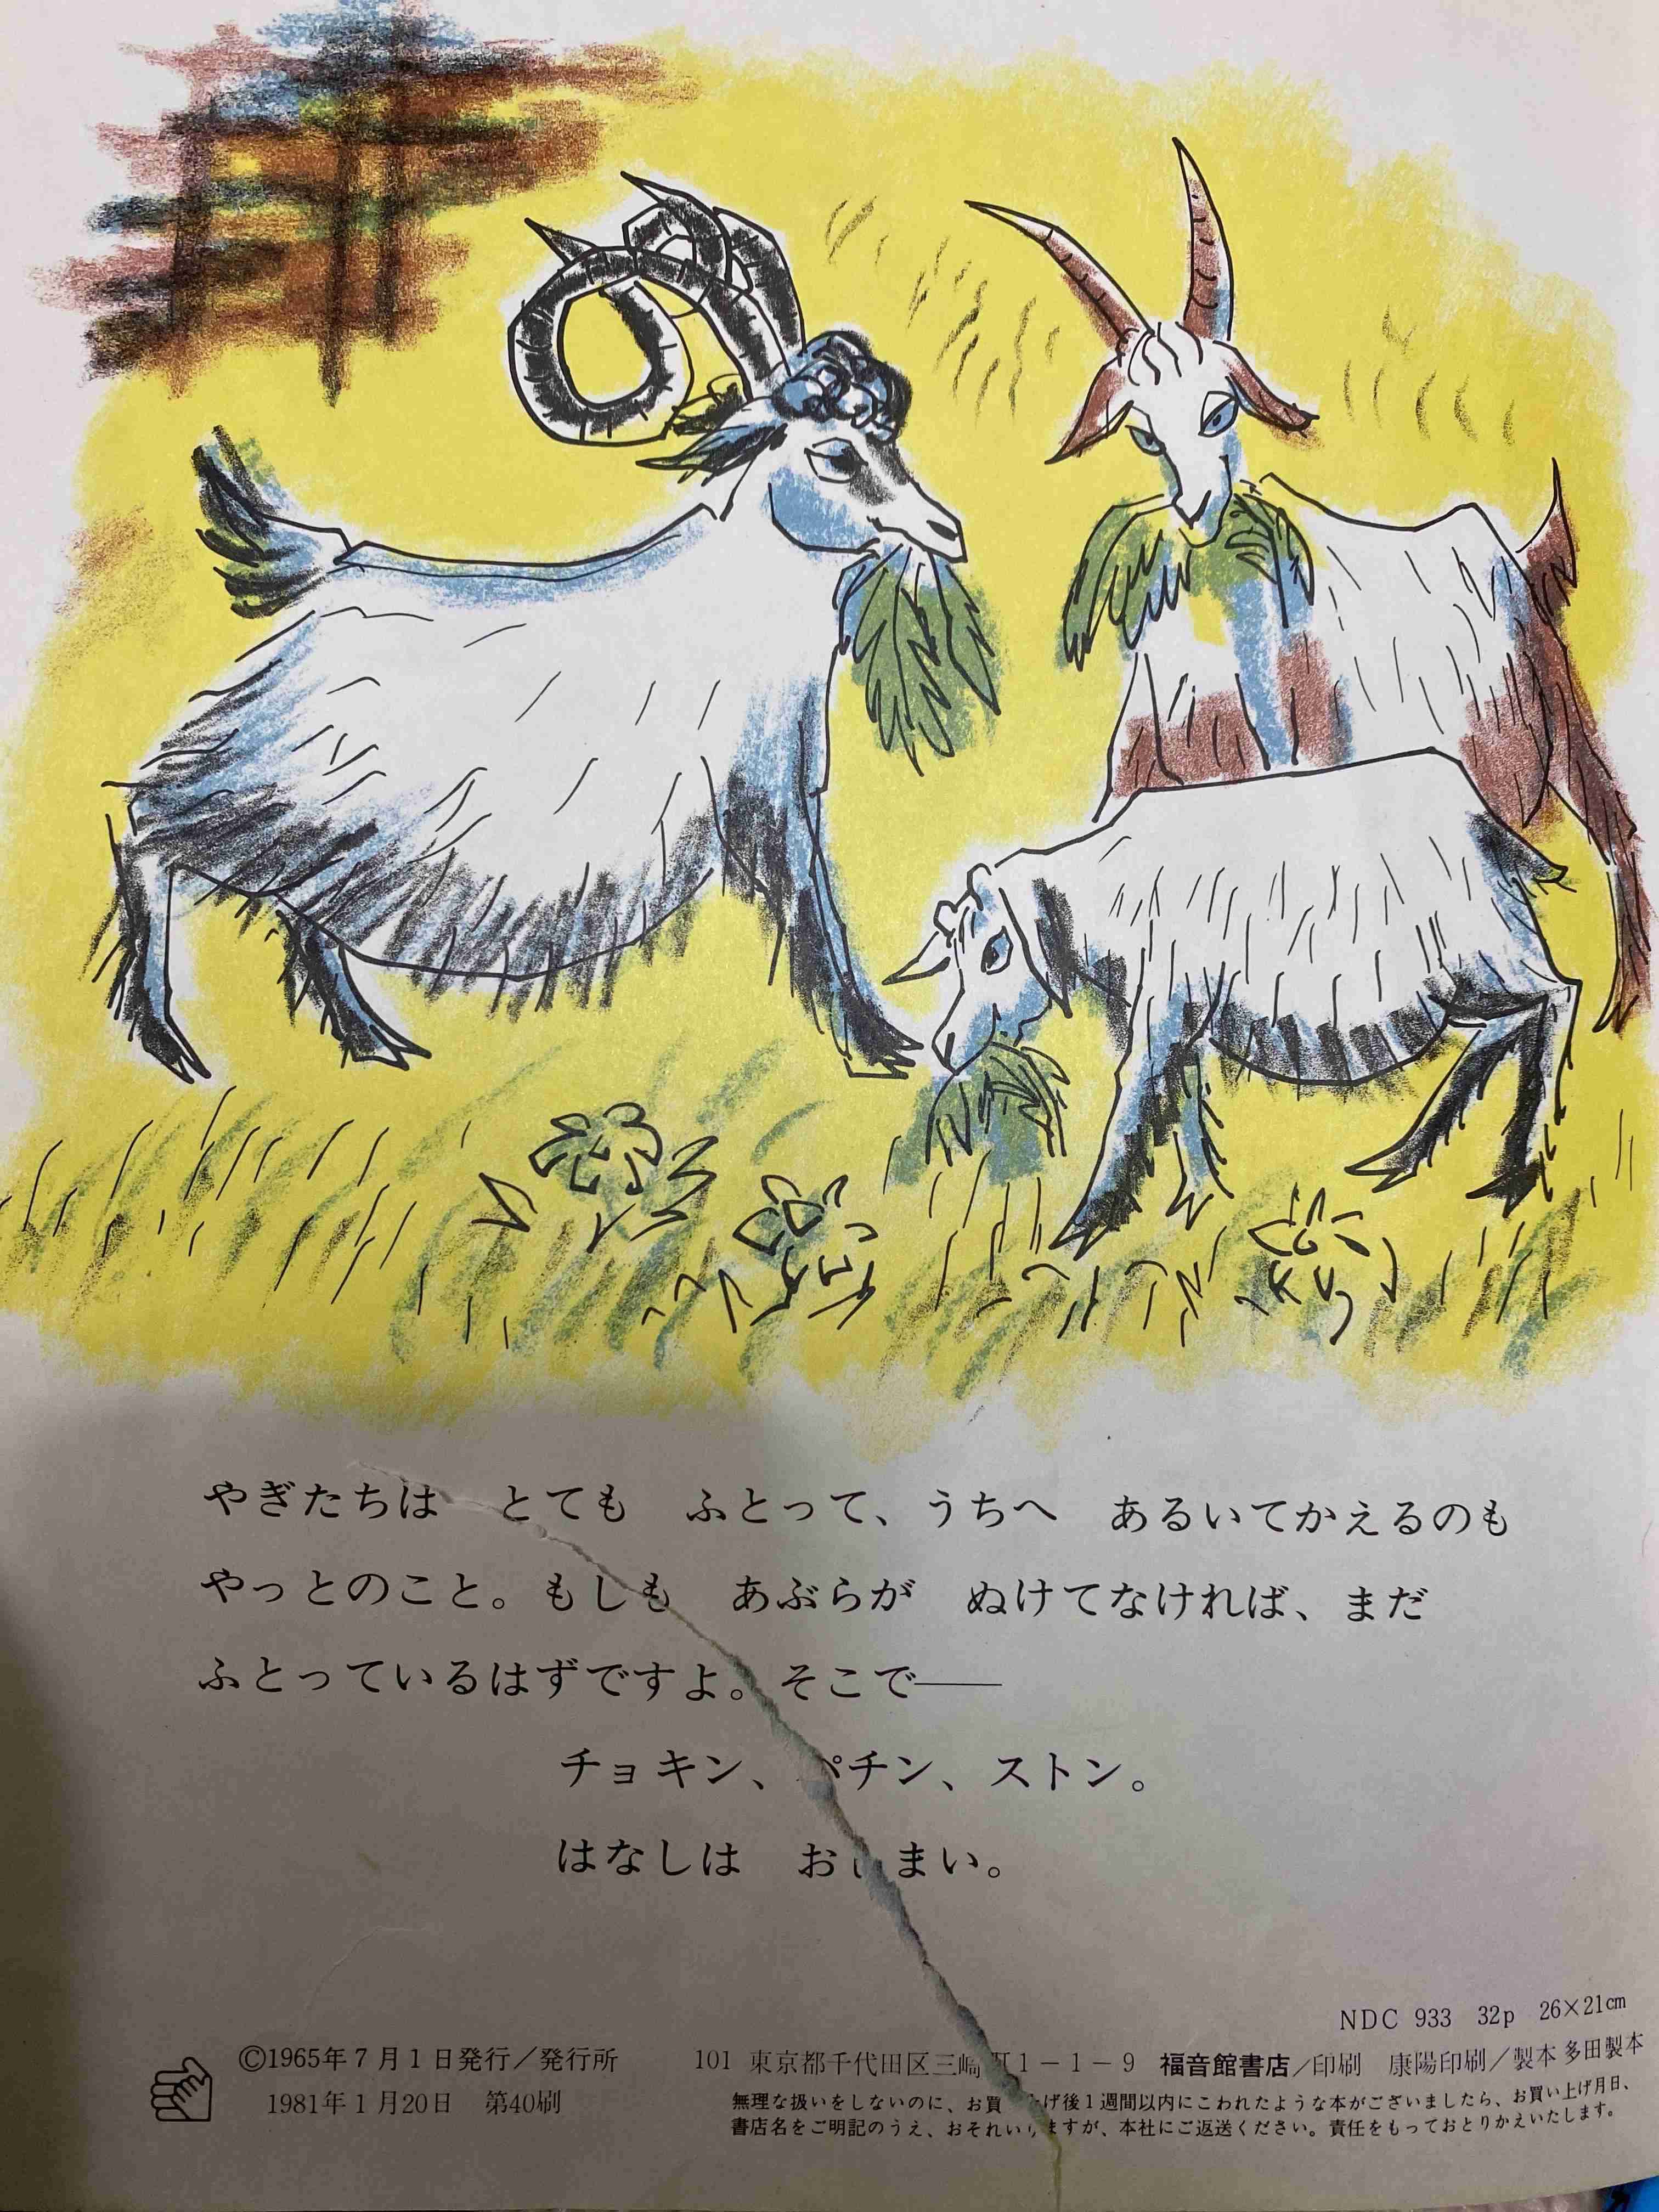 やぎたちは　とても　ふとって、うちへ　あるいてかえるのも
やっとのこと。もしも　あぶらが　ぬけてなければ、まだ
ふとっているはずですよ。そこで――
チョキン、パチン、ストン。
はなしは　おしまい。
NDC 933　32p　26×21cm
©1965年7月1日発行／発行所　101　東京都千代田区三崎町1－1－9　福音館書店／印刷　康陽印刷／製本　多田製本
1981年1月20日　第40刷
無理な扱いをしないのに、お買い上げ後1週間以内にこわれたような本がございましたら、お買い上げ月日、
書店名をご明記のうえ、おそれいりますが、本社にご返送ください。責任をもっておとりかえいたします。